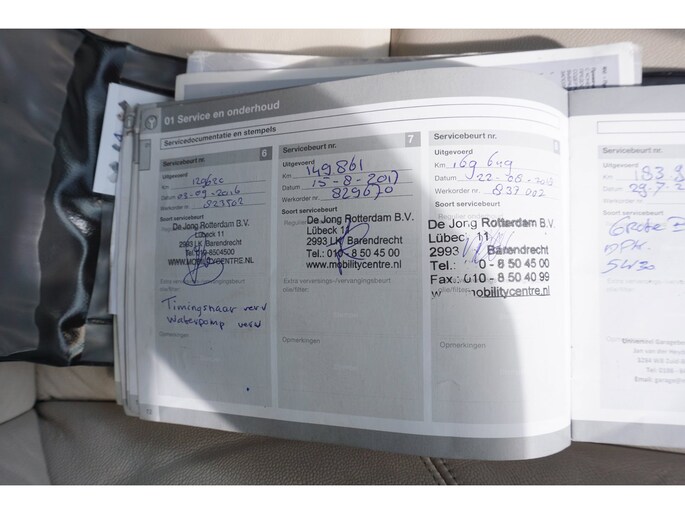 01 Service en onderhoud
Servicedocumentatie en stempels
Servicebeurt nr. 6
Uitgevoerd
Km
Datum 03-09-2016
Werkorder nr 823502
Soort servicebeurt
De Jong Rotterdam B.V.
Lübeck 11
2993 LK Barendrecht
Tel: 010-8504500
WWW.MOBILITYCENTRE.NL
Extra verversings-/vervangingsbeurt
olie/filter:
Timingsnaar verv
Waterpomp verv
Opmerkingen
Servicebeurt nr. 7
Uitgevoerd
Km 149.861
Datum 15-8-2017
Werkorder nr. 829670
Soort servicebeurt
De Jong Rotterdam B.V.
Lübeck 11
2993 LK Barendrecht
Tel.: 010 - 8 50 45 00
www.mobilitycentre.nl
Extra verversings-/vervangingsbeurt
olie/filter:
Opmerkingen
Servicebeurt nr. 8
Uitgevoerd
Km 169.649
Datum
Werkorder nr. 837.002
Soort servicebeurt
De Jong Rotterdam B.V.
Lübec 11
2993 Barendrecht
Tel.: 0 - 8 50 45 00
Fax.: 010 - 8 50 40 99
mobilitycentre.nl
olie/filter:
Opmerkingen
Servicebeurt nr.
Uitgevoerd
Km 183.9
Datum 29-7-2
Werkorder nr.
Soort servicebeurt
Grote
5W30
Extra verversings
olie/filter:
Opmerkingen
Universeel Garage